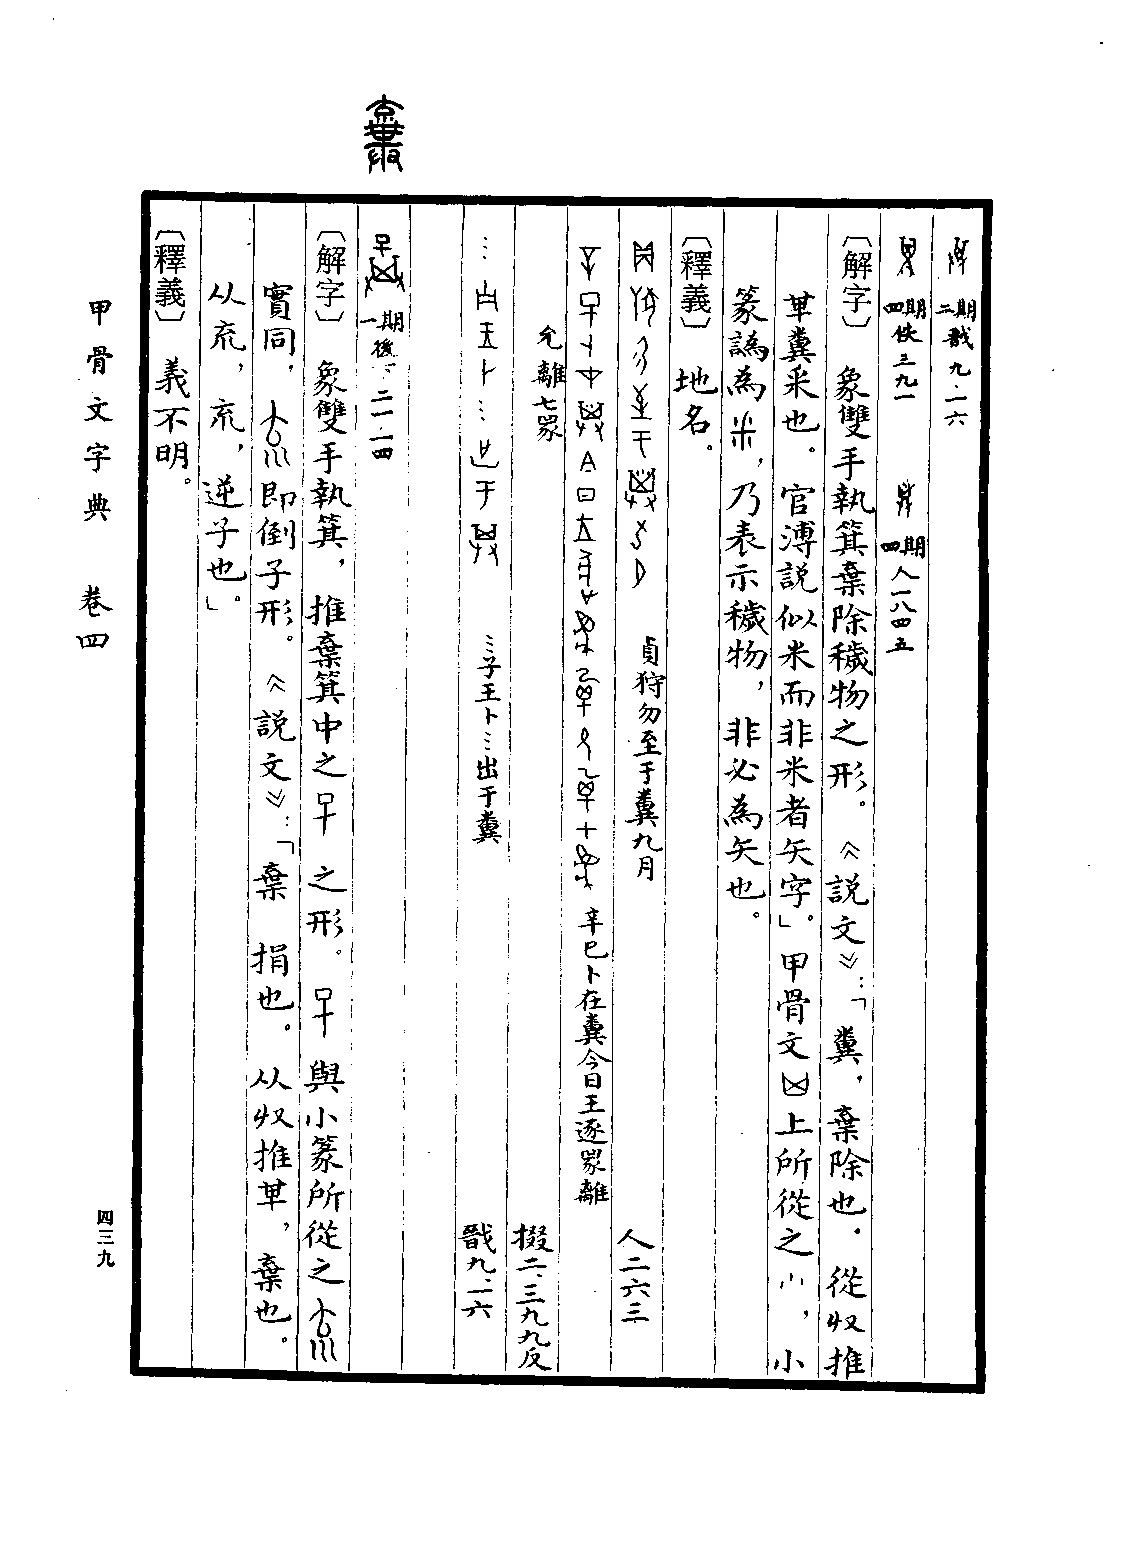 二期戩九·一六
四期佚三九一 四期人一八四五
〔解字〕 象雙手執箕棄除穢物之形。《說文》:「糞,棄除也。從収推
𠦒糞釆也。官溥說似米而非米者矢字。」甲骨文上所從之,小
篆譌為米,乃表示穢物,非必為矢也。
〔釋義〕 地名。
貞狩勿至于糞九月 人二六三
辛巳卜在糞今日王逐眔離
允離七眔 掇二·三九九反
…子王卜…出于糞 戩九·一六
棄
一期後下二一·一四
〔解字〕 象雙手執箕,推棄箕中之之形。與小篆所從之
實同,即倒子形。《說文》:「棄 捐也。从収推𠦒,棄也。
从㐬,㐬,逆子也。」
〔釋義〕 義不明。
甲骨文字典 卷四
四三九